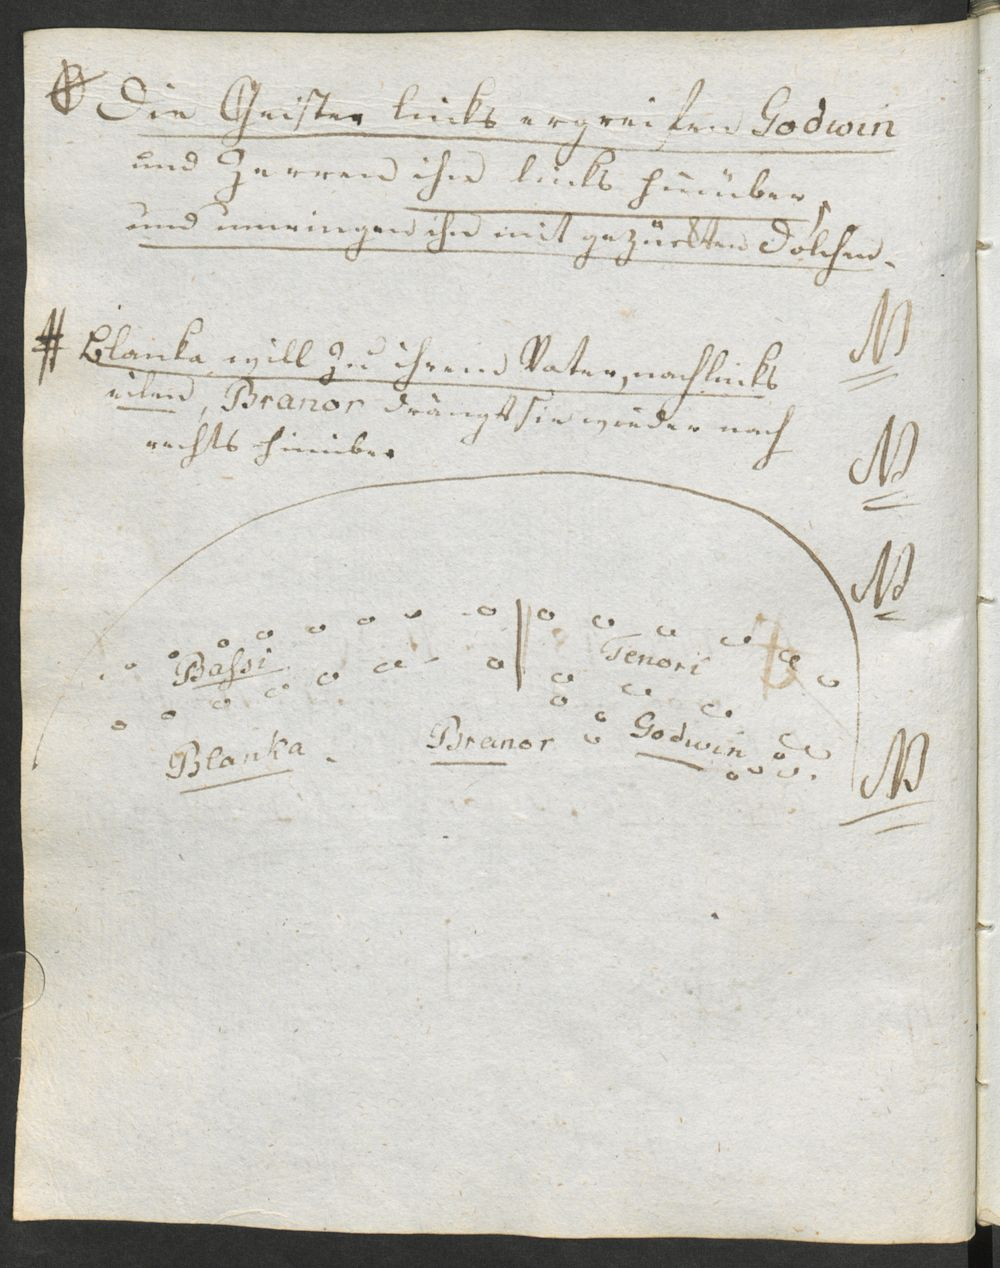 Die Geister links ergreifen Godwin
und Zerren ihn links hinüber,
und umringen ihn mit gezückten Dolchen.
Blanka will zu ihrem Vater, nach links
eilen, Branor drängt sie wieder nach
rechts hinüber
NB
NB
NB
Bassi
Tenori
Blanka
Branor
Godwin
NB